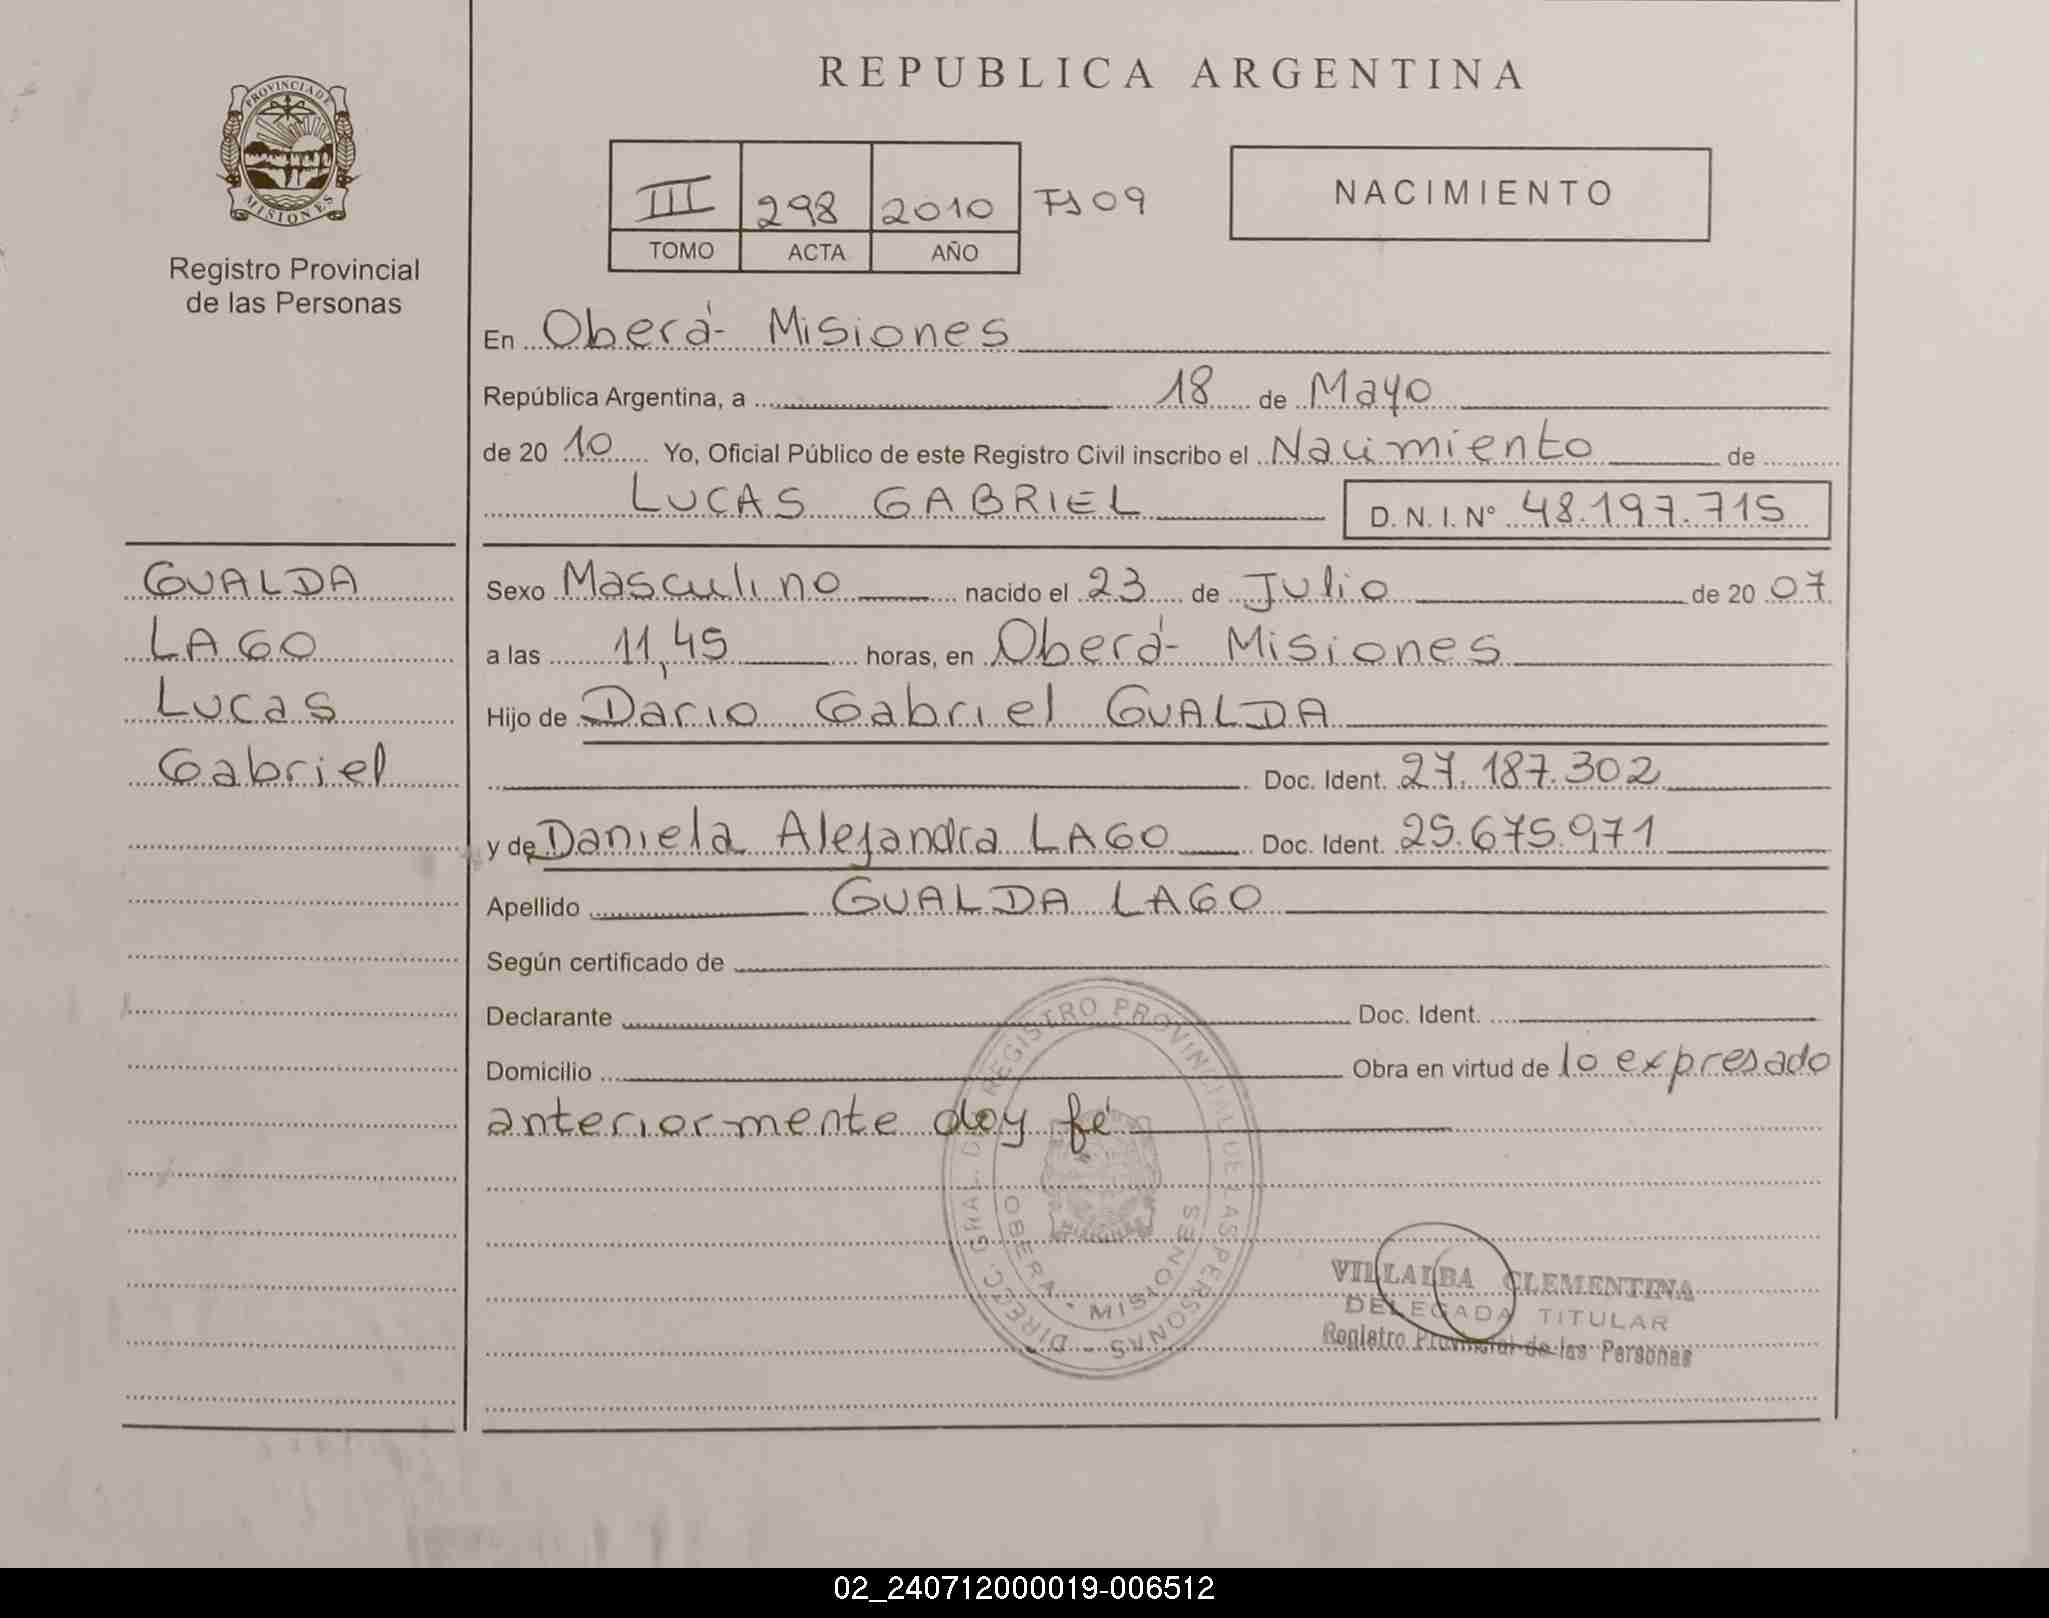 REPUBLICA ARGENTINA
PROVINCIA DE
MISIONES
Registro Provincial
de las Personas
III 298 2010 Fs 09
TOMO ACTA AÑO
NACIMIENTO
En Oberá - Misiones
República Argentina, a 18 de Mayo
de 20 10 Yo, Oficial Público de este Registro Civil inscribo el Nacimiento de
LUCAS GABRIEL D. N. I. N° 48.197.715
GUALDA
LAGO
Lucas
Gabriel
Sexo Masculino nacido el 23 de Julio de 20 07
a las 11,45 horas, en Oberá - Misiones
Hijo de Dario Gabriel GUALDA
Doc. Ident. 27.187.302
y de Daniela Alejandra LAGO Doc. Ident. 25.675.971
Apellido GUALDA LAGO
Según certificado de
Declarante Doc. Ident.
Domicilio Obra en virtud de lo expresado
anteriormente doy fé
DIRECC. GRAL. DEL REGISTRO PROVINCIAL DE LAS PERSONAS -
OBERA - MISIONES
VILLALBA CLEMENTINA
DELEGADA TITULAR
Registro Provincial de las Personas
02_240712000019-006512